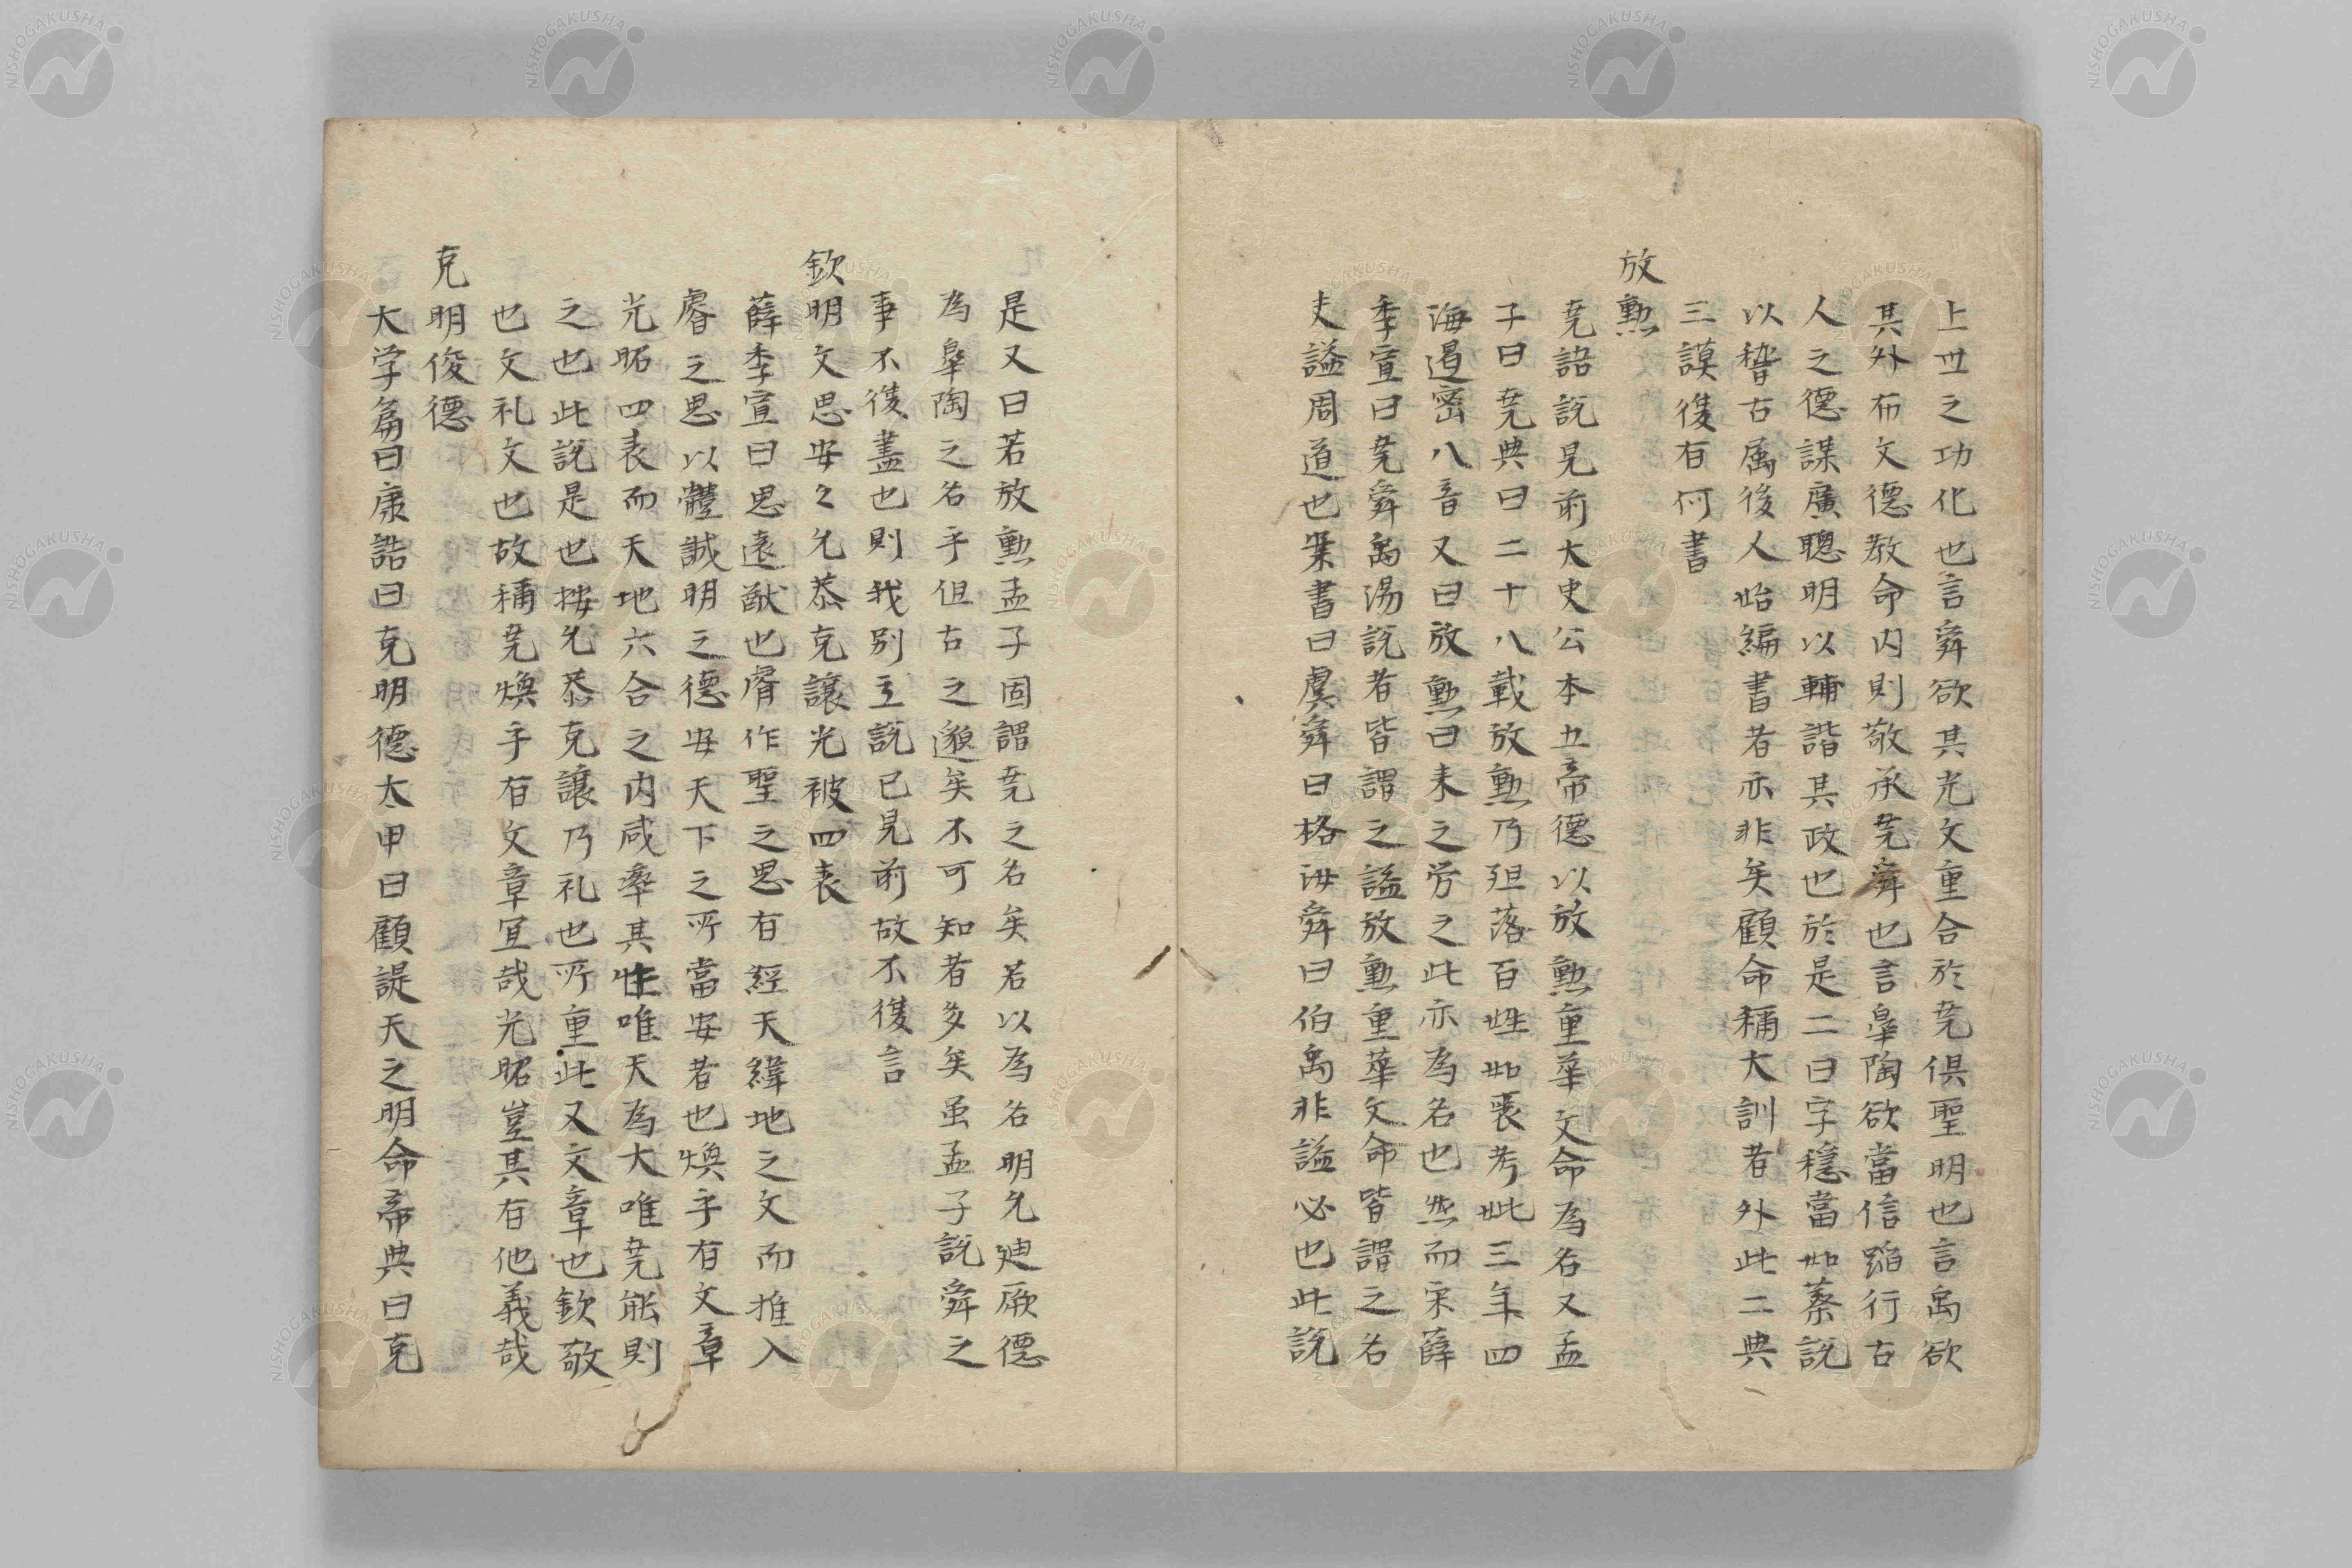 上世之功化也言舜欲其光文重合於尭倶聖明也言禹欲
其外布文德教命内則敬承尭舜也言皐陶欲當信蹈行古
人之德謀廣聰明以輔諧其政也於是二曰字穏當如蔡説
以稽古属後人始編書者亦非矣顧命稱大訓者外此二典
三謨復有何書
放勲
尭詔説見前大史公本五帝德以放勲重華文命為名又孟
子曰尭典曰二十八載放勲乃殂落百姓如喪考妣三年四
海遏密八音又曰放勲曰来之労之此亦為名也然而宋薛
季宣曰尭舜禹湯説者皆謂之諡放勲重華文命皆謂之名
夫諡周道也業書曰虞舜曰格汝舜曰伯禹非諡必也此説
是又曰若放勲孟子固謂尭之名矣若以為名明允廸厥德
為皐陶之名乎但古之邈矣不可知者多矣虽孟子説舜之
事不復盡也則我別主説已見前故不復言
欽明文思安々允恭克讓光被四表
薛季宣曰思遠猷也睿作聖之思有經天緯地之文而推入
睿之思以體誠明之德安天下之所當安者也煥乎有文章
光昭四表而天地六合之内咸率其性唯天為大唯尭能則
之也此説是也按允恭克讓乃礼也所重此又文章也欽敬
也文礼文也故稱尭煥乎有文章冝哉光昭豈其有他義哉
克明俊德
大学篇曰康誥曰克明德太甲曰顧諟天之明命帝典曰克
NISHOGAKUSHA